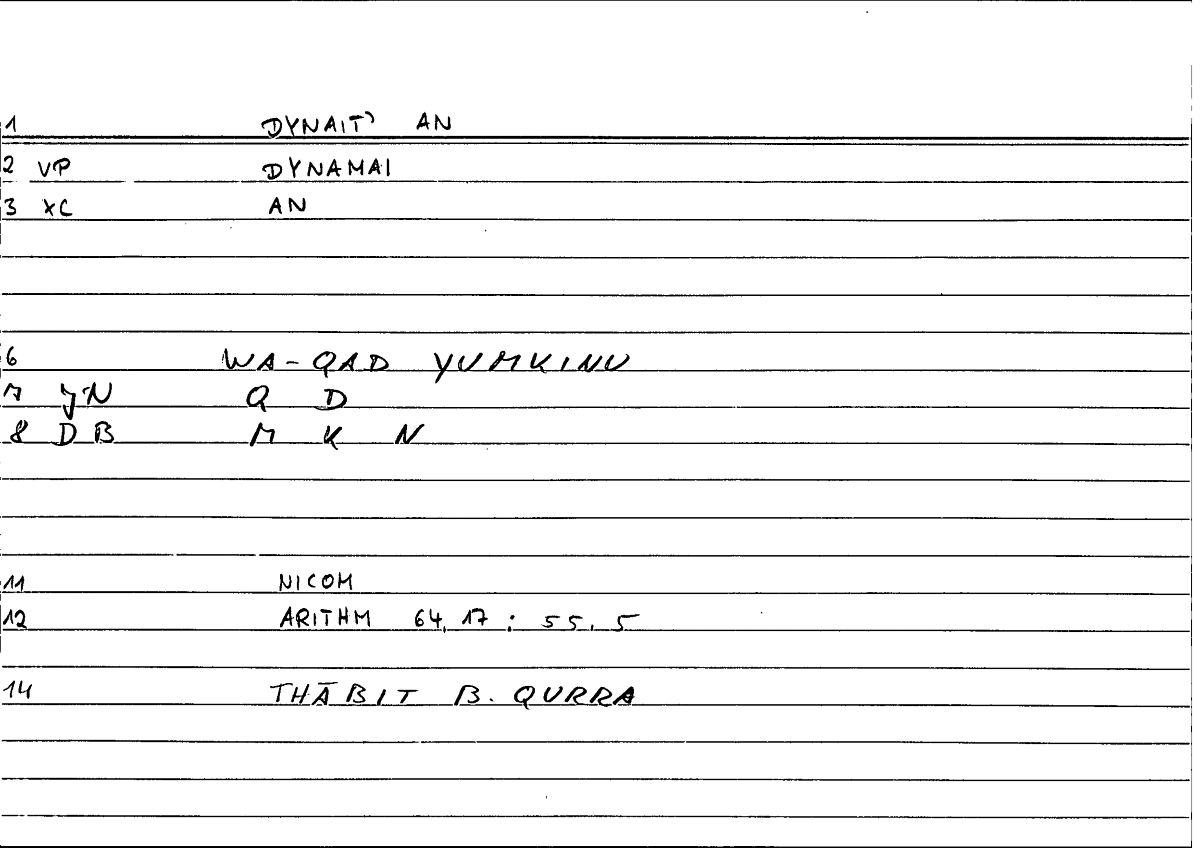 1 DYNAIT' AN
2 VP DYNAMAI
3 XC AN
6 WA-QAD YUMKINU
7 YN Q D
8 DB M K N
11 NICOM
12 ARITHM 64,17 ; 55,5
14 THĀBIT B. QURRA